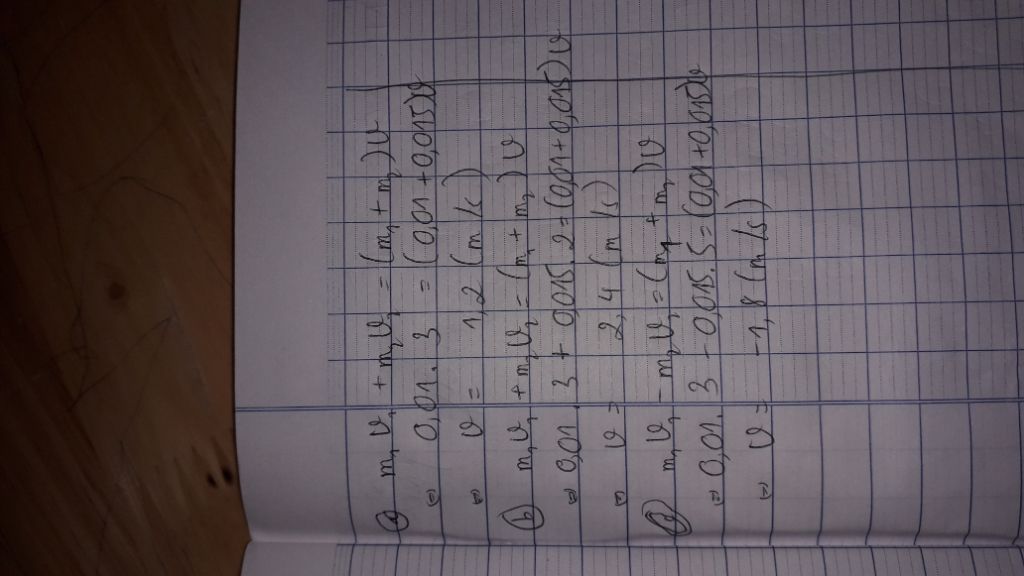 a) m₁v₁ + m₂v₂ = (m₁ + m₂)v
(=) 0,01. 3 = (0,01 + 0,015)v
(=) v = 1,2 (m/s)
b) m₁v₁ + m₂v₂ = (m₁ + m₂)v
(=) 0,01. 3 + 0,015. 2 = (0,01 + 0,015)v
(=) v = 2,4 (m/s)
m₁v₁ - m₂v₂ = (m₁ + m₂)v
(=) 0,01. 3 - 0,015. 5 = (0,01 + 0,015)v
(=) v = -1,8 (m/s)